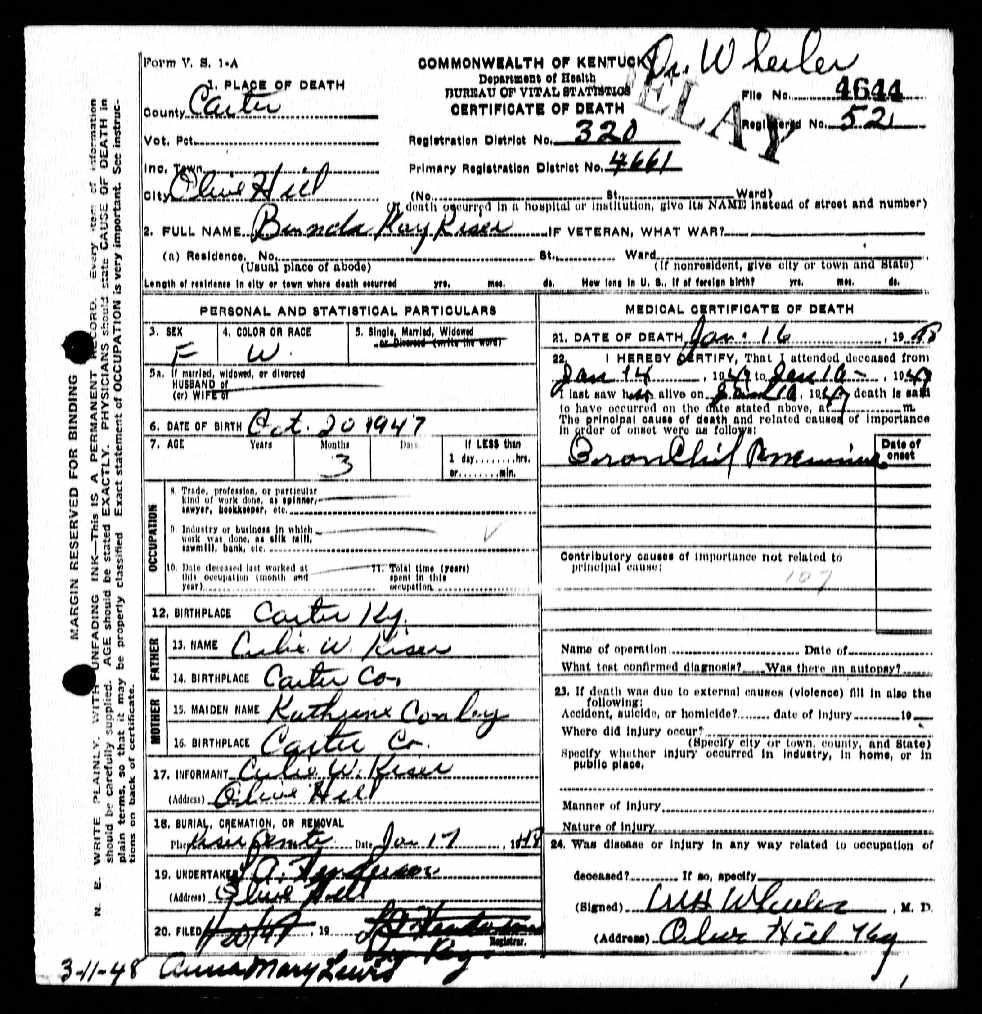 Form V. S. 1-A
COMMONWEALTH OF KENTUCKY
Dr. Wheeler
Department of Health
BUREAU OF VITAL STATISTICS
CERTIFICATE OF DEATH
DELAY
File No. 4644
Registered No. 52
1. PLACE OF DEATH
County Carter
Vot. Pct.
Inc. Town
City Olive Hill
Registration District No. 320
Primary Registration District No. 4661
(No. St. Ward)
(If death occurred in a hospital or institution, give its NAME instead of street and number)
2. FULL NAME Kay Kiser IF VETERAN, WHAT WAR?
(a) Residence. No. St., Ward
(Usual place of abode) (If nonresident, give city or town and State)
Length of residence in city or town where death occurred yrs. mos. ds. How long in U. S., if of foreign birth? yrs. mos. ds.
PERSONAL AND STATISTICAL PARTICULARS
3. SEX F
4. COLOR OR RACE W.
5. Single, Married, Widowed
or Divorced (write the word)
5a. If married, widowed, or divorced
HUSBAND of
(or) WIFE of
6. DATE OF BIRTH Oct. 20 1947
7. AGE Years Months Days If LESS than
3 1 day........hrs.
or........min.
OCCUPATION
8. Trade, profession, or particular
kind of work done, as spinner,
sawyer, bookkeeper, etc.
9. Industry or business in which
work was done, as silk mill,
sawmill, bank, etc.
10. Date deceased last worked at
this occupation (month and
year)
11. Total time (years)
spent in this
occupation.
12. BIRTHPLACE Carter Ky.
FATHER
13. NAME W. Kiser
14. BIRTHPLACE Carter Co.
MOTHER
15. MAIDEN NAME Kathrine Conley
16. BIRTHPLACE Carter Co.
17. INFORMANT W. Kiser
(Address) Olive Hill
18. BURIAL, CREMATION, OR REMOVAL
Place Kiser Date Jan 17, 1948
19. UNDERTAKER
(Address) Olive Hill
20. FILED , 19
Registrar.
3-11-48 Anna Mary Lewis
MEDICAL CERTIFICATE OF DEATH
21. DATE OF DEATH Jan. 16, 1948
22. I HEREBY CERTIFY, That I attended deceased from
Jan 14, 1947 to Jan 16, 1947
I last saw h alive on Jan 16, 1947 death is said
to have occurred on the date stated above, at m.
The principal cause of death and related causes of importance
in order of onset were as follows:
Date of
onset
Bronchial Pneumonia
Contributory causes of importance not related to
principal cause:
107
Name of operation Date of
What test confirmed diagnosis? Was there an autopsy?
23. If death was due to external causes (violence) fill in also the
following:
Accident, suicide, or homicide? date of injury 19
Where did injury occur?
(Specify city or town, county, and State)
Specify whether injury occurred in industry, in home, or in
public place.
Manner of injury
Nature of injury
24. Was disease or injury in any way related to occupation of
deceased? If so, specify
(Signed) Wheeler, M. D.
(Address) Olive Hill Ky
MARGIN RESERVED FOR BINDING
N. B. WRITE PLAINLY, WITH UNFADING INK—THIS IS A PERMANENT RECORD. Every item of information
should be carefully supplied. AGE should be stated EXACTLY. PHYSICIANS should state CAUSE OF DEATH in
plain terms, so that it may be properly classified. Exact statement of OCCUPATION is very important. See instruc-
tions on back of certificate.